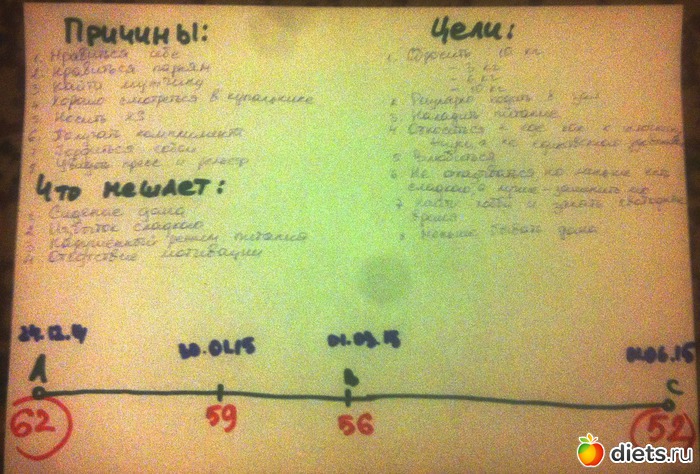 Причины:
1. Нравиться себе
2. Нравиться парням
3. Найти мужчину
4. Хорошо смотреться в купальнике
5. Носить XS
6. Получать комплименты
Гордиться собой
Увидеть пресс и рельеф
Что мешает:
1. Сидение дома
2. Избыток сладкого
3. Нарушенный режим питания
4. Отсутствие мотивации
Цели:
1. Сбросить 10 кг
- 3 кг
- 6 кг
- 10 кг
2. Регулярно ходить в зал
3. Наладить питание
4. Относиться к еде как к
5. Влюбиться
6. Не
сладкого
7. Найти хобби и занять свободное
время
8. Меньше бывать дома
24.12.14
30.01.15
01.03.15
01.06.15
A
B
C
62
59
56
52
diets.ru